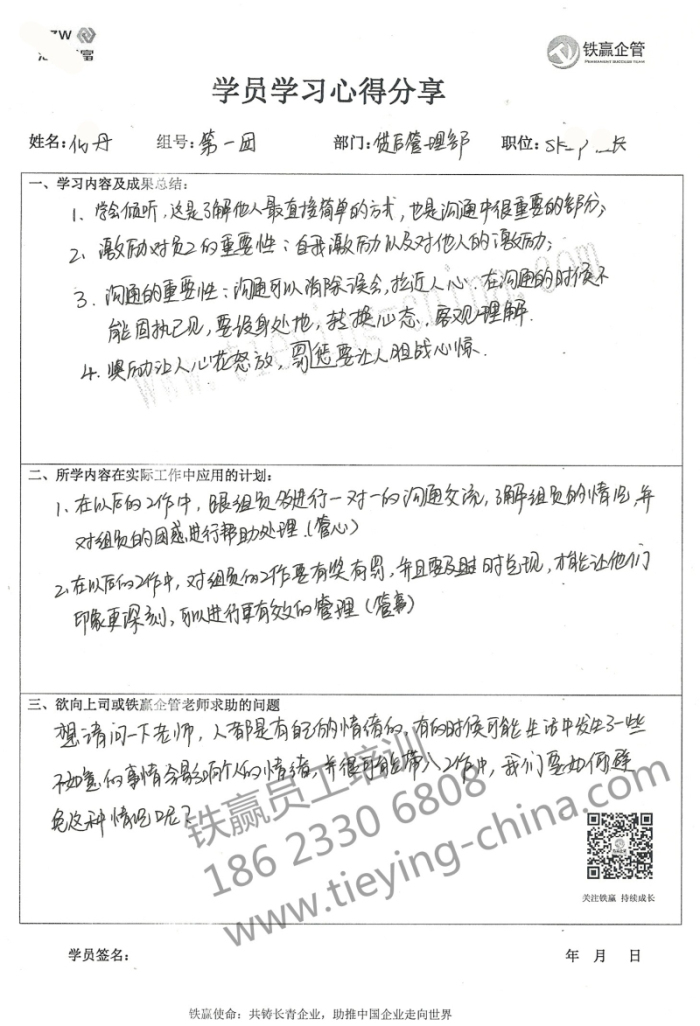 ZW
富
铁赢企管
PERMANENT SUCCESS TEAM
学员学习心得分享
姓名:伯丹 组号:第一团 部门:贷后管理部 职位: 长
一、学习内容及成果总结:
1、学会倾听,这是了解他人最直接简单的方式,也是沟通中很重要的部分;
2、激励对员工的重要性:自我激励以及对他人的激励;
3、沟通的重要性:沟通可以消除误会,拉近人心.在沟通的时候不
能固执己见,要设身处地,转换心态,客观理解.
4、奖励让人心花怒放,罚惩要让人胆战心惊.
二、所学内容在实际工作中应用的计划:
1、在以后的工作中,跟组员多进行一对一的沟通交流,了解组员的情况,并
对组员的困惑进行帮助处理.(管心)
2、在以后的工作中,对组员的工作要有奖有罚,并且要及时兑现,才能让他们
印象更深刻,可以进行更有效的管理(管事)
三、欲向上司或铁赢企管老师求助的问题
想请问一下老师,人都是有自己的情绪的,有的时候可能生活中发生了一些
不如意的事情会影响个人的情绪,并很可能带入工作中,我们要如何避
免这种情况呢?
铁赢员工培训
186 2330 6808
www.tieying-china.com
关注铁赢 持续成长
学员签名: 年 月 日
铁赢使命:共铸长青企业,助推中国企业走向世界